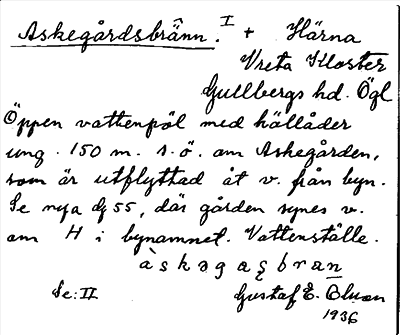 Askegårdsbrånn. I + Härna
Vreta Kloster
Gullbergs hd. Ögl.
Öppen vattenpöl med källåder
ung. 150 m. s.ö. om Askegården,
som är utflyttad åt v. från byn.
Se nya dj 55, där gården synes v.
om H i bynamnet. Vattenställe.
àskəgaşbran
Se: II Gustaf E. Olson
1936